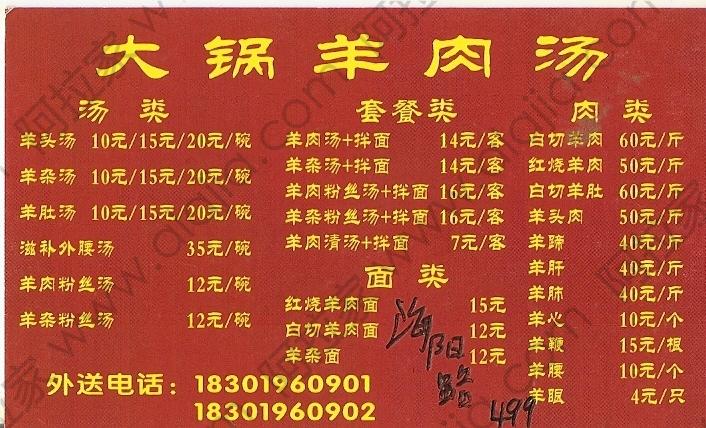 大锅羊肉汤
汤类
羊头汤 10元/15元/20元/碗
羊杂汤 10元/15元/20元/碗
羊肚汤 10元/15元/20元/碗
滋补外腰汤 35元/碗
羊肉粉丝汤 12元/碗
羊杂粉丝汤 12元/碗
套餐类
羊肉汤+拌面 14元/客
羊杂汤+拌面 14元/客
羊肉粉丝汤+拌面 16元/客
羊杂粉丝汤+拌面 16元/客
羊肉清汤+拌面 7元/客
面类
红烧羊肉面 15元
白切羊肉面 12元
羊杂面 12元
肉类
白切羊肉 60元/斤
红烧羊肉 50元/斤
白切羊肚 60元/斤
羊头肉 50元/斤
羊蹄 40元/斤
羊肝 40元/斤
羊肺 40元/斤
羊心 10元/个
羊鞭 15元/根
羊腰 10元/个
羊眼 4元/只
外送电话：18301960901
18301960902
海阳路
499
阿拉家 www.alajia.com